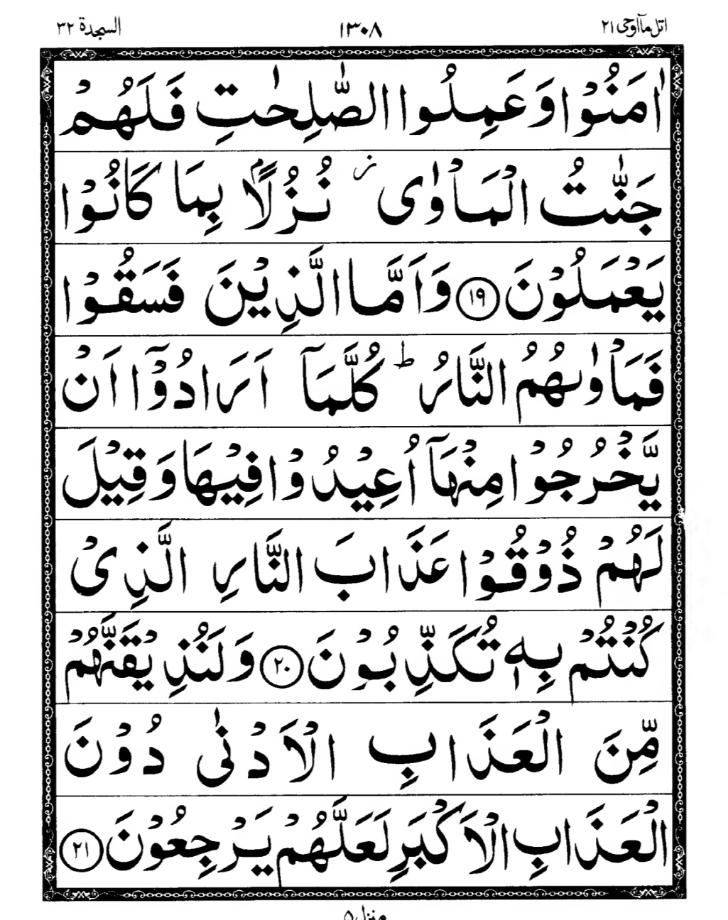 اتل ما اوحی ۲۱ ۱۳۰۸ السجدة ۳۲
اٰمَنُوْا وَعَمِلُوا الصّٰلِحٰتِ فَلَهُمْ
جَنّٰتُ الْمَاْوٰى ز نُزُلًاۢ بِمَا كَانُوْا
يَعْمَلُوْنَ ۱۹ وَاَمَّا الَّذِيْنَ فَسَقُوْا
فَمَاْوٰىهُمُ النَّارُ ط كُلَّمَآ اَرَادُوْٓا اَنْ
يَّخْرُجُوْا مِنْهَآ اُعِيْدُوْا فِيْهَا وَقِيْلَ
لَهُمْ ذُوْقُوْا عَذَابَ النَّارِ الَّذِىْ
كُنْتُمْ بِهٖ تُكَذِّبُوْنَ ۲۰ وَلَنُذِيْقَنَّهُمْ
مِّنَ الْعَذَابِ الْاَدْنٰى دُوْنَ
الْعَذَابِ الْاَكْبَرِ لَعَلَّهُمْ يَرْجِعُوْنَ ۲۱
منزل ۵